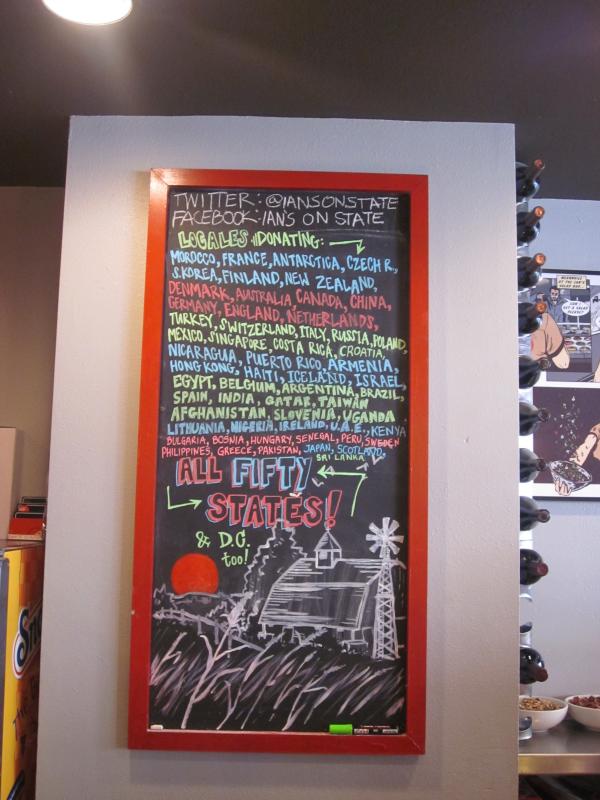 TWITTER: @IANSONSTATE
FACEBOOK: IAN'S ON STATE
LOCALES DONATING:
MOROCCO, FRANCE, ANTARCTICA, CZECH R.,
S.KOREA, FINLAND, NEW ZEALAND,
DENMARK, AUSTRALIA CANADA, CHINA,
GERMANY, ENGLAND, NETHERLANDS,
TURKEY, SWITZERLAND, ITALY, RUSSIA, POLAND,
MEXICO, SINGAPORE, COSTA RICA, CROATIA,
NICARAGUA, PUERTO RICO, ARMENIA,
HONG KONG, HAITI, ICELAND, ISRAEL,
EGYPT, BELGIUM, ARGENTINA, BRAZIL,
SPAIN, INDIA, QATAR, TAIWAN
AFGHANISTAN, SLOVENIA, UGANDA
LITHUANIA, NIGERIA, IRELAND, U.A.E., KENYA
BULGARIA, BOSNIA, HUNGARY, SENEGAL, PERU, SWEDEN
PHILIPPINES, GREECE, PAKISTAN, JAPAN, SCOTLAND,
SRI LANKA
ALL FIFTY
STATES!
& D.C.
too!